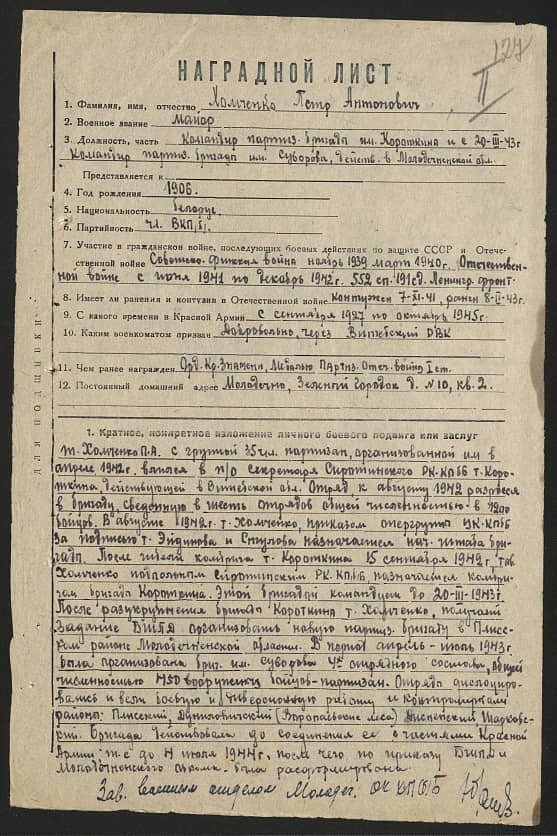 127
II
НАГРАДНОЙ ЛИСТ
1. Фамилия, имя, отчество Хомченко Петр Антонович
2. Военное звание Майор
3. Должность, часть Командир партиз. бригады им. Короткина и с 20-III-43г
Командир партиз. бригады им. Суворова, действ. в Молодечненской обл.
Представляется к
4. Год рождения 1906.
5. Национальность Белорус.
6. Партийность чл. ВКП/б/.
7. Участие в гражданской войне, последующих боевых действиях по защите СССР и Отече-
ственной войне Советско-Финская война ноябрь 1939 март 1940г. Отечествен-
ной войне с июня 1941 по декабрь 1942г. 552 сп. 191 сд. Ленингр. фронт.
8. Имеет ли ранения и контузии в Отечественной войне контужен 7-XI-41, ранен 8-II-43г.
9. С какого времени в Красной Армии с сентября 1927 по октябрь 1945г.
10. Каким военкоматом призван Добровольно, через Витебский ОВК
11. Чем ранее награжден Орд. Кр. Знамени, Медалью Партиз. Отеч. войны I ст.
12. Постоянный домашний адрес Молодечно, Зеленый Городок д. N 10, кв. 2.
ДЛЯ ПОДШИВКИ
1. Краткое, конкретное изложение личного боевого подвига или заслуг
т. Хомченко П.А. с группой 35 чел. партизан, организованной им в
апреле 1942г. влился в п/о секретаря Сиротинского РК-КПбБ т. Коро-
ткина, действующей в Витебской обл. Отряд к августу 1942 разросся
в бригаду, сведенную в шесть отрядов общей численностью в
бойцов. В августе 1942г. т. Хомченко, приказом опергруппы ЦК-КПбБ
за подписью т. Эйдинова и назначается нач. штаба бри-
гады. После гибели комбрига т. Короткина 15 сентября 1942г тов.
Хомченко подпольным Сиротинским РК. КПбБ назначается комбри-
гом бригады Короткина. Этой бригадой командует до 20-III-1943г.
После разукрупнения бригады Короткина т. Хомченко, получает
задание БШПД организовать новую партиз. бригаду в Плисс-
ком районе Молодечненской области. В период апрель - июль 1943г.
была организована бриг. им. Суворова 4х отрядного состава, общей
численностью 450 вооружен. бойцов-партизан. Отряды дислоциро-
вались и вели боевую и диверсионную работу и контролировали
районы: Плисский, Дуниловичский (Воропаевские леса) Миспейский Шарковс-
кий. Бригада действовала до соединения ее с частями Красной
Армии т.е до 4 июля 1944г, после чего по приказу БШПД и
Молодечненского обкома была расформирована.
Зав. военным отделом Молодеч. ОК КП/б/Б